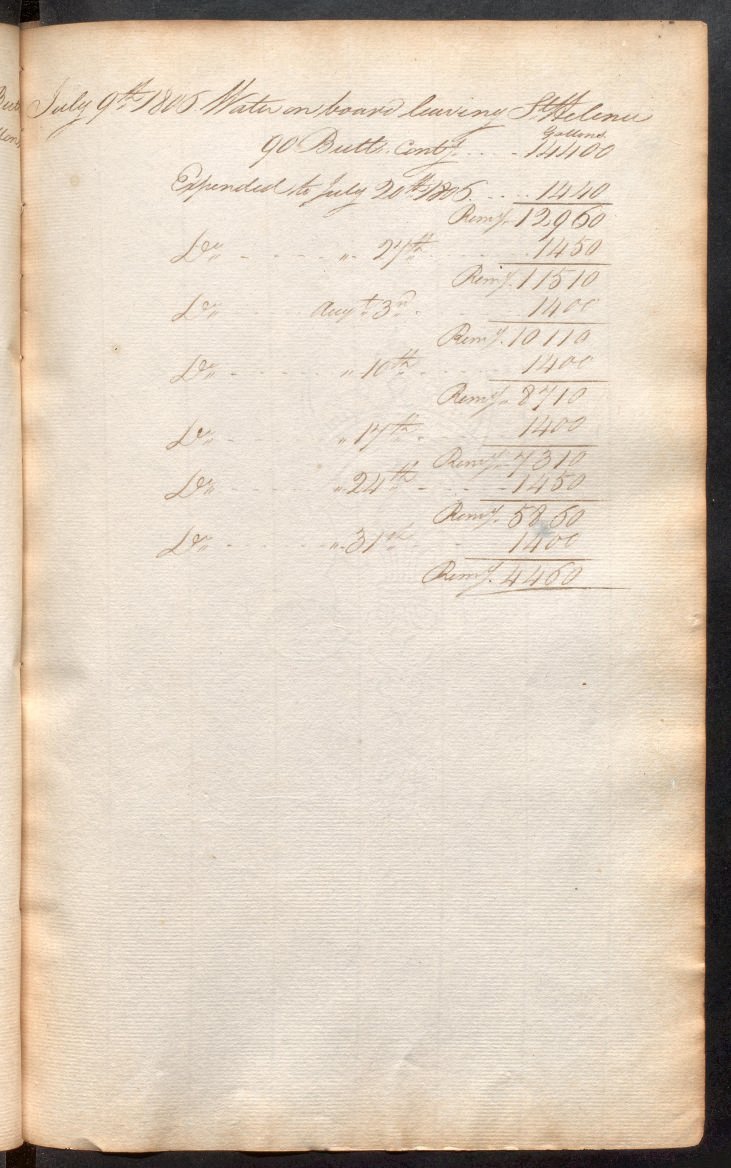 July 9th 1806 Water on board leaving St Helena
Gallons
90 Butts Contg. .... 14400
Expended to July 20th 1806 .... 1440
Remg. 12960
Do „ . . . . . „ 27th . . . . 1450
Remg. 11510
Do „ . . . Augt. 3rd . . . . 1400
Remg. 10110
Do „ . . . . . „ 10th . . . . 1400
Remg. 8710
Do „ . . . . . „ 17th . . . . 1400
Remg. 7310
Do „ . . . . . „ 24th . . . . 1450
Remg. 5860
Do „ . . . . . „ 31st . . . . 1400
Remg. 4460